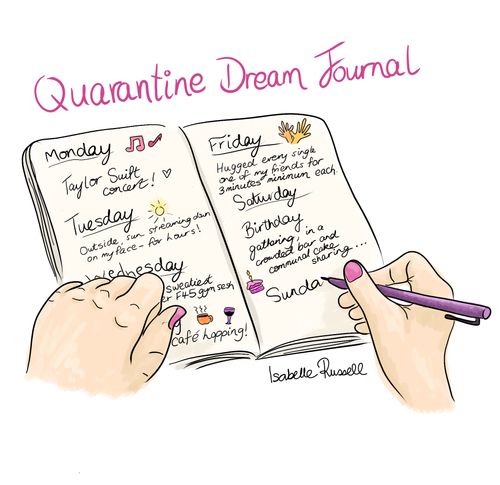 Quarantine Dream Journal
Monday
Taylor Swift
concert! ♡
Tuesday
Outside, sun streaming down
on my face - for hours!
Wednesday
sweatiest
F45 gym sesh
café hopping!
Friday
Hugged every single
one of my friends for
3 minutes minimum each.
Saturday
Birthday
gathering, in a
crowded bar and
communal cake
sharing...
Sunda
Isabelle Russell